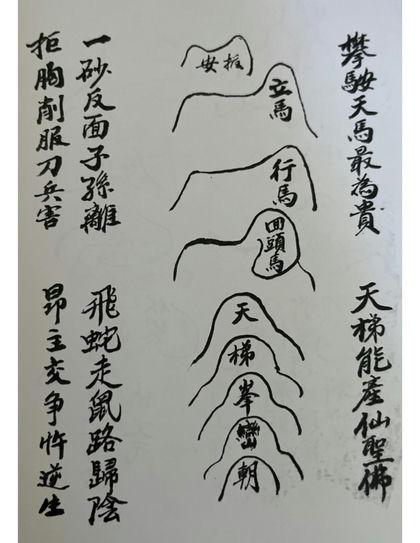 攀天馬最為貴
天梯能產仙聖佛
立馬
行馬
回頭馬
天
梯
峯
巒
朝
一砂反面子孫離
飛蛇走鼠路歸陰
拒胸削服刀兵害
昂主交争忤逆生